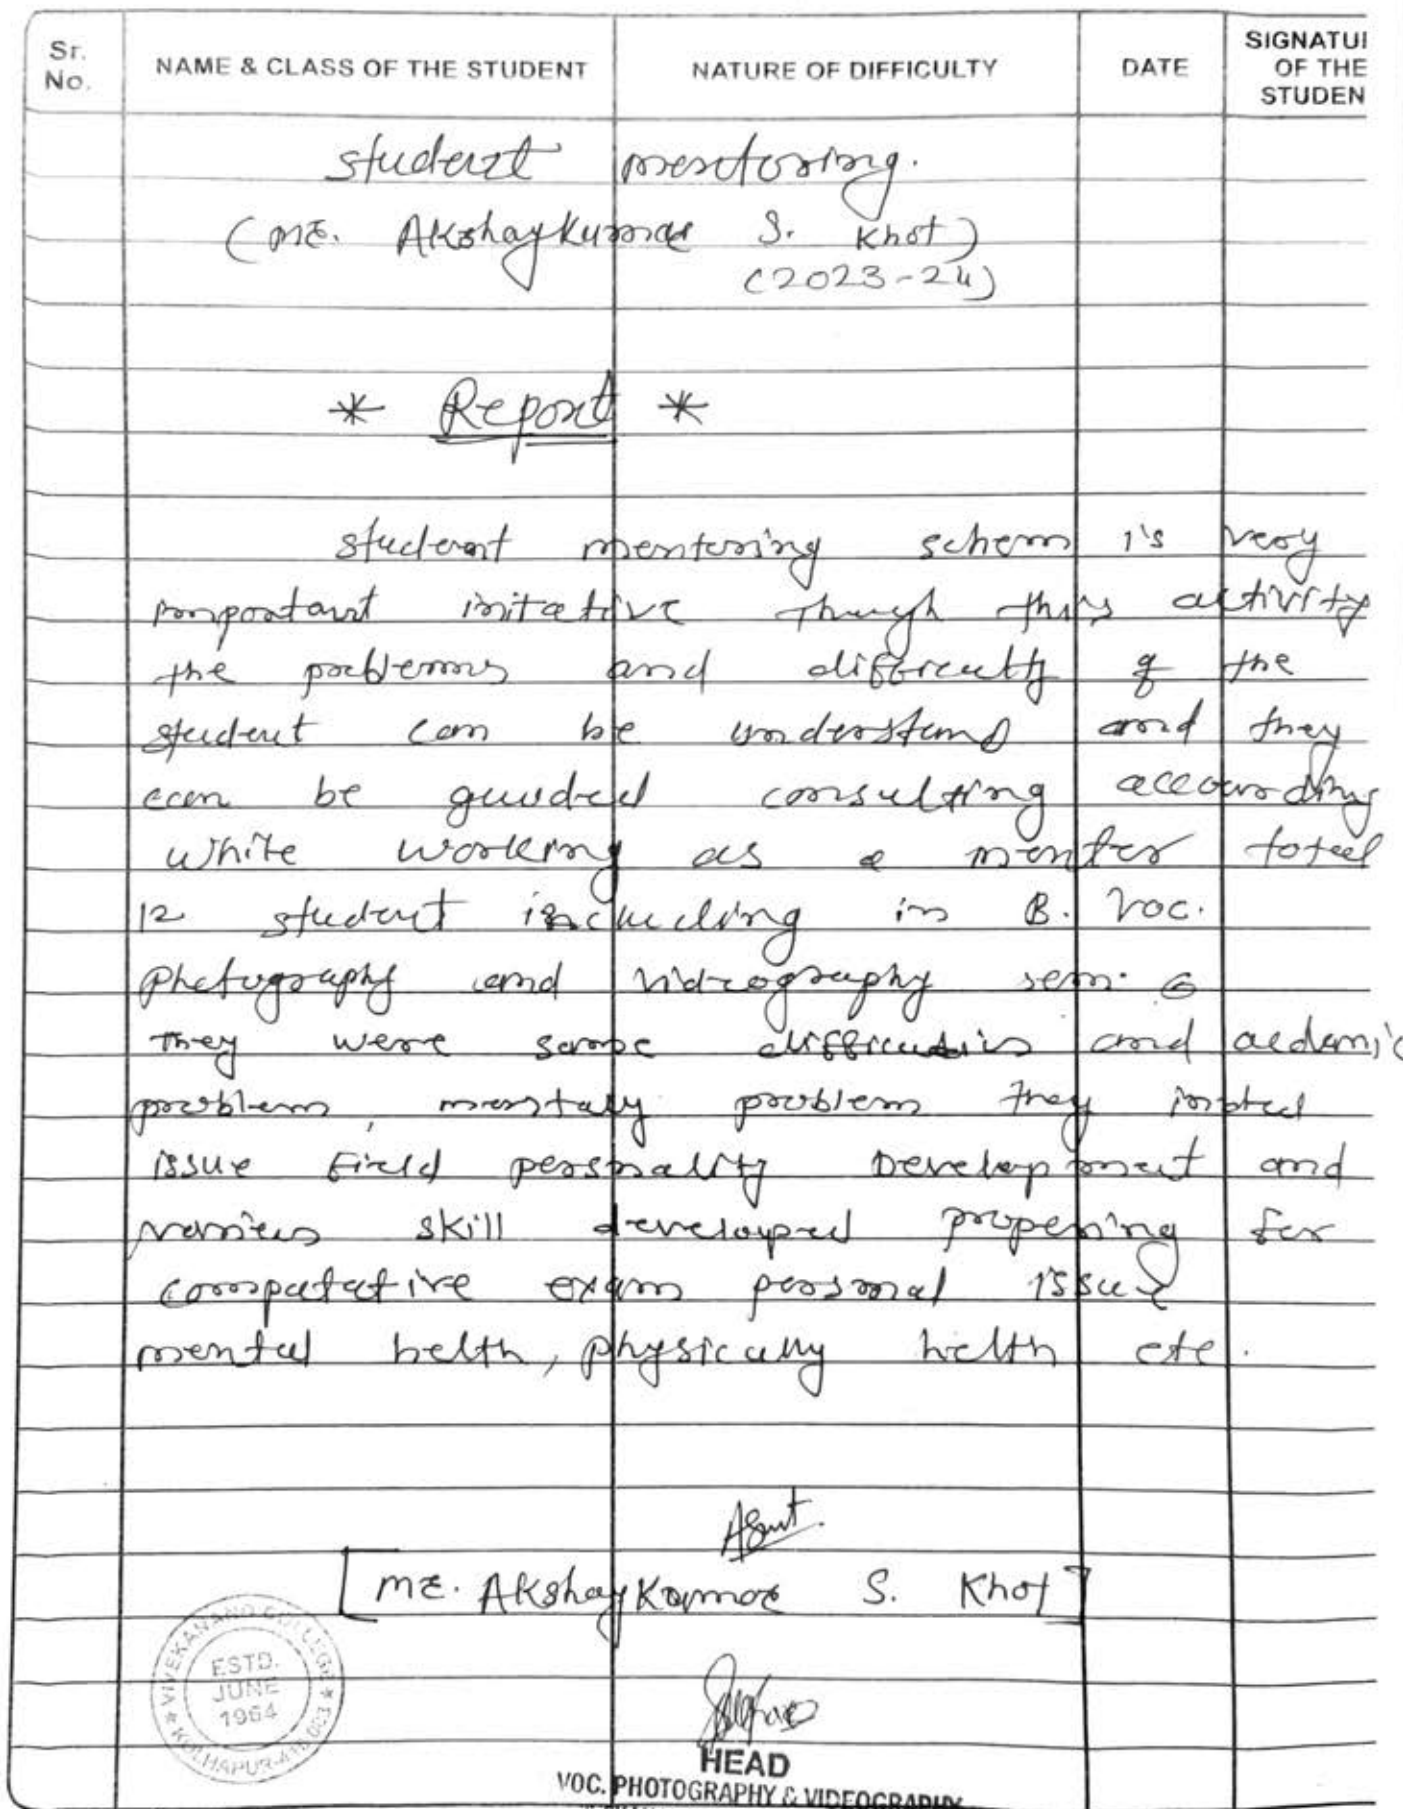 Sr. No.
NAME & CLASS OF THE STUDENT
NATURE OF DIFFICULTY
DATE
SIGNATUI OF THE STUDEN
student mentoring.
(Mr. Akshaykumar S. Khot)
(2023-24)
* Report *
student mentoring schem is very
important initative though this activity
the problems and difficulty of the
student can be understand and they
can be guided consulting according
while working as a mentor total
12 student including in B. Voc.
Photography and Videography sem. 6
They were some difficulties and acdamic
problem, mentaly problem they
issue Field personality Development and
various skill developed prepering for
compatative exam personal issue
mental helth, physically helth etc.
[Mr. Akshaykumar S. Khot]
VIVEKANAND COLLEGE
ESTD.
JUNE
1964
KOLHAPUR
HEAD
VOC. PHOTOGRAPHY & VIDEOGRAPHY